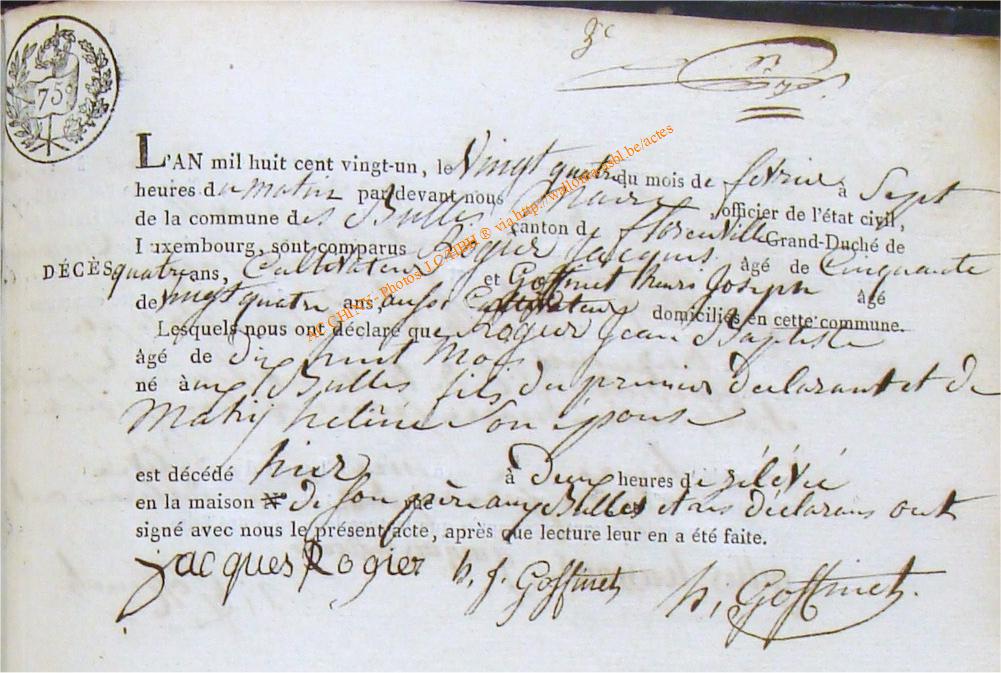 75
L'AN mil huit cent vingt-un, le Vingt quatre du mois de fevrier à Sept
heures du matin par devant nous Maire officier de l'état civil,
de la commune des Bulles canton de florenville Grand-Duché de
Luxembourg, sont comparus Rogier Jacques âgé de Cinquante
DÉCÈS quatre ans, Cultivateur et Goffinet henri Joseph âgé
de vingt quatre ans, aussi Cultivateur domiciliés en cette commune.
Lesquels nous ont déclaré que Rogier Jean Baptiste
âgé de Dix huit Mois
né aux Bulles fils du premier Declarant et de
Mathy helene Son épouse
est décédé hier à Deux heures de rélévé
en la maison de Son père aux Bulles et les déclarans ont
signé avec nous le présent acte, après que lecture leur en a été faite.
Jacques Rogier h. j. Goffinet h, Goffinet.
ARCHIVE - Photos J.C. via http://wallonia-asbl.be/actes